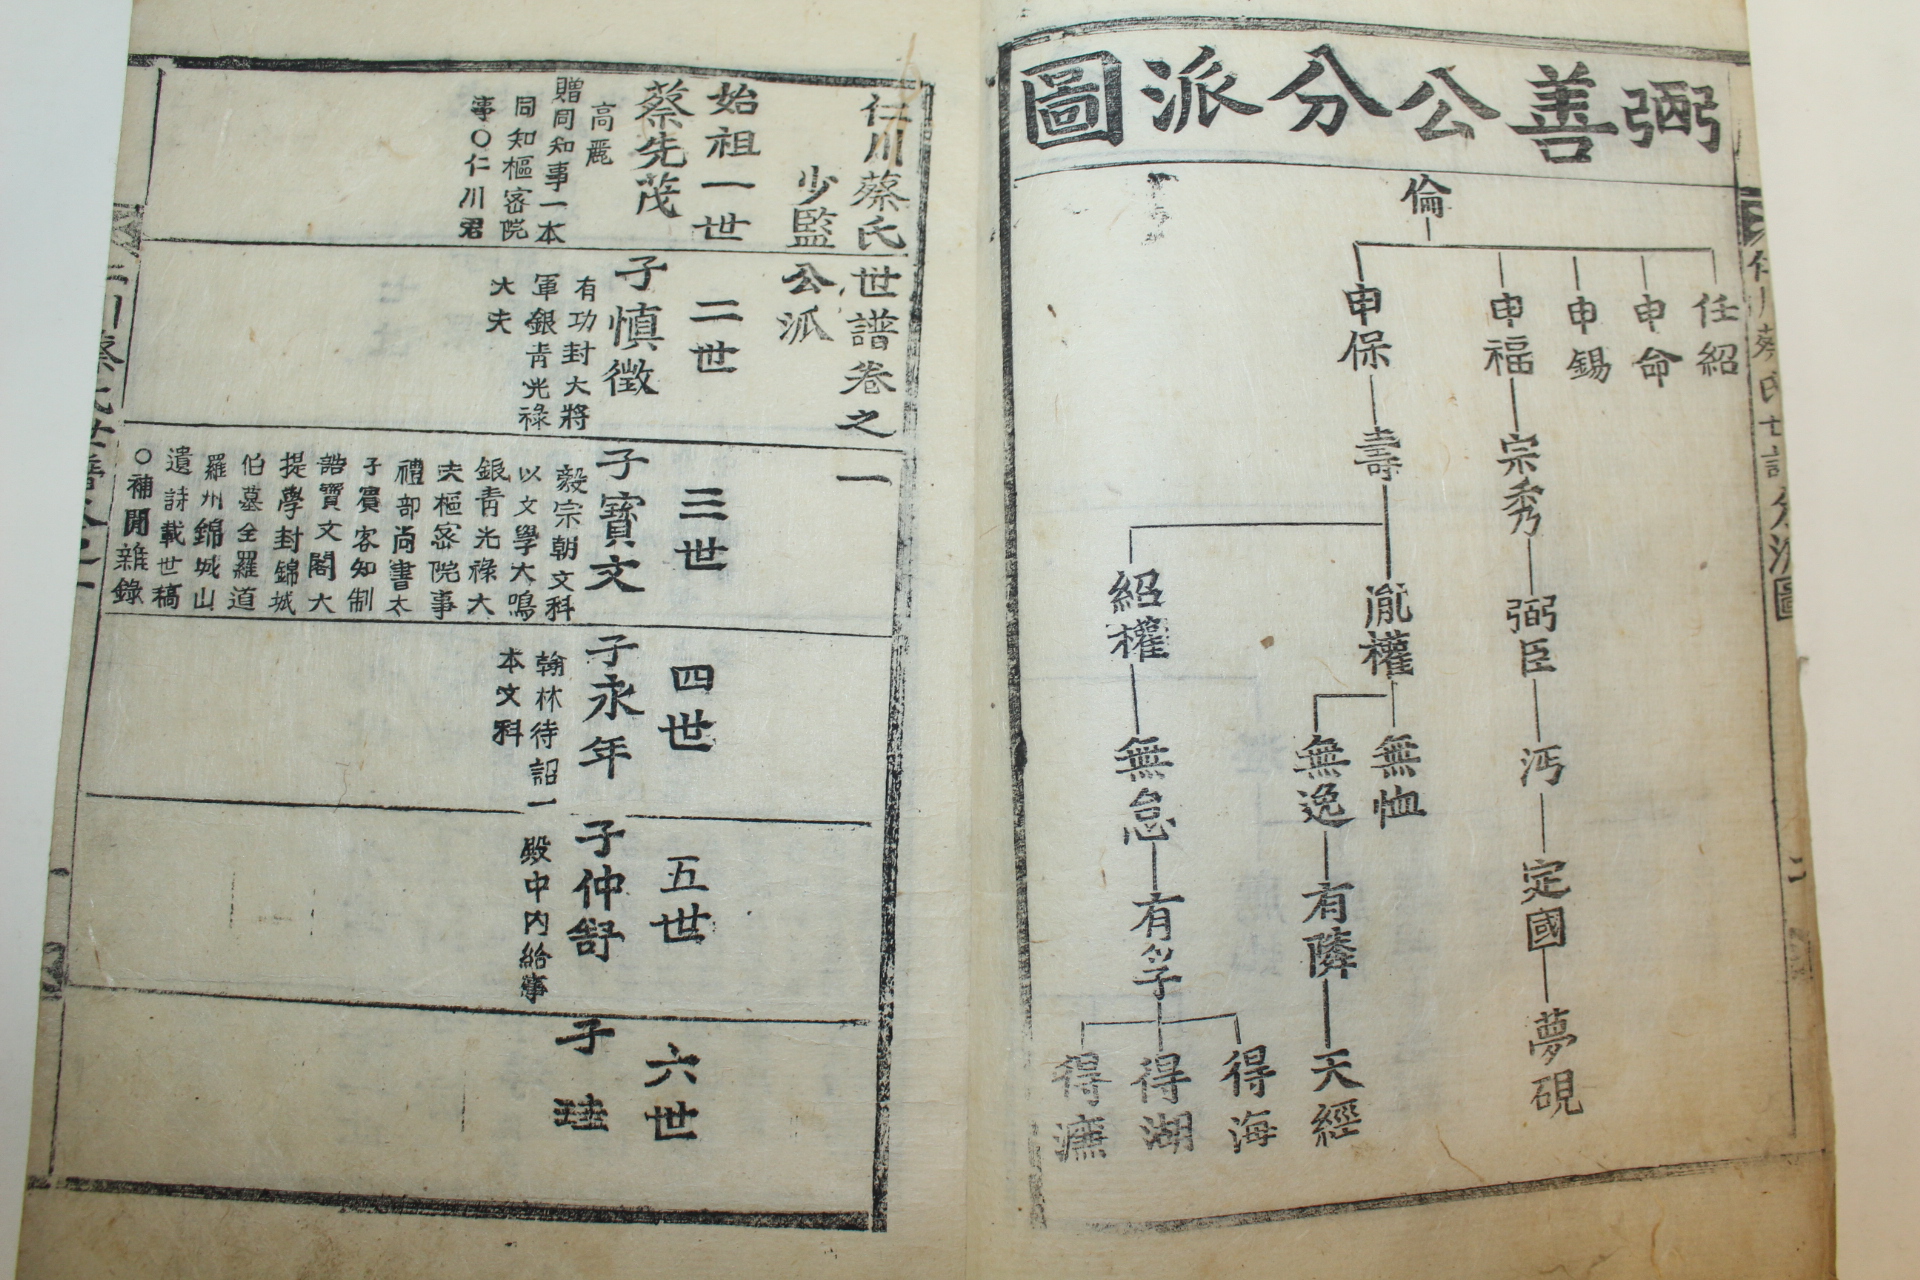 弼善公分派圖
倫
任紹
申命
申錫
申福
宗秀
弼臣
沔
定國
夢硯
申保
壽
胤權
無恤
無逸
有隣
天經
紹權
無怠
有孚
得海
得湖
得㶇
仁川蔡氏世譜卷之一
少監公派
始祖一世
蔡先茂
高麗
贈同知事一本
同知樞密院
事○仁川君
二世
子慎徵
有功封大將
軍銀青光祿
大夫
三世
子寶文
毅宗朝文科
以文學大鳴
銀青光祿大
夫樞密院事
禮部尚書太
子賓客知制
誥寶文閣大
提學封錦城
伯墓全羅道
羅州錦城山
遺詩載世稿
○補閒雜錄
四世
子永年
翰林待詔一
本文科
五世
子仲舒
殿中內給事
六世
子珪